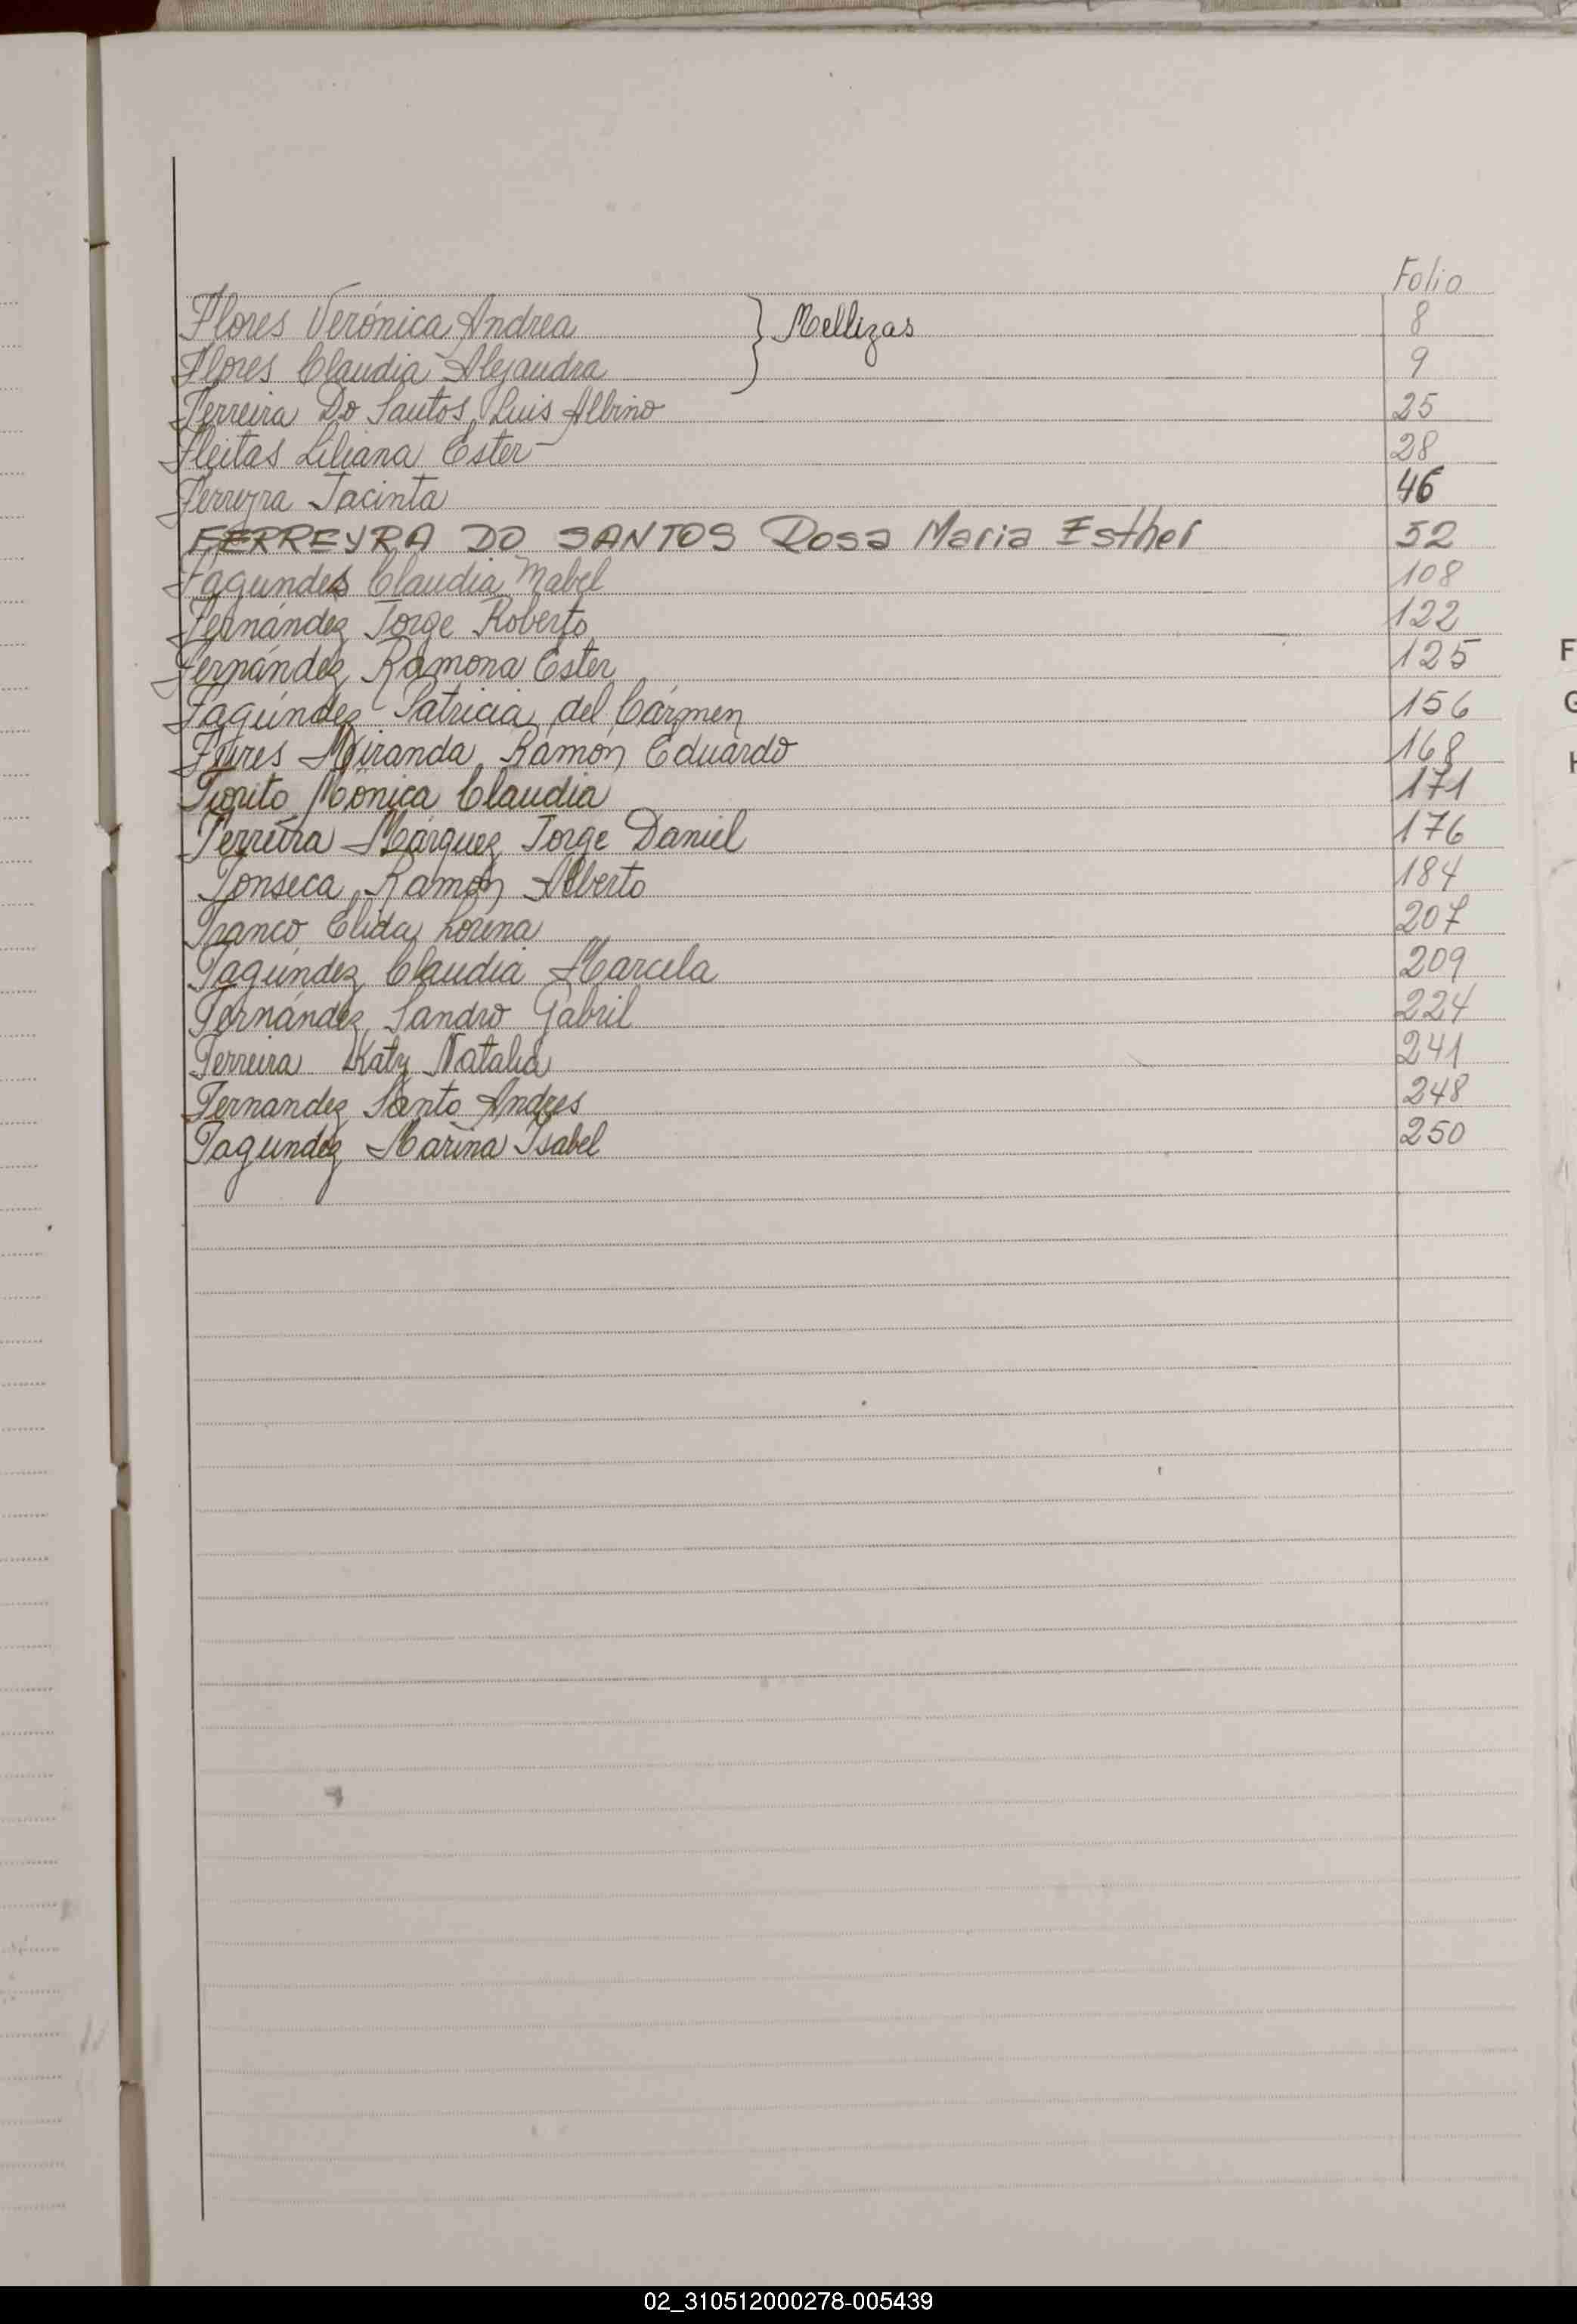 Folio
Flores Verónica Andrea } Mellizas 8
Flores Claudia Alejandra 9
Ferreira Do Santos Luis Albino 25
Fleitas Liliana Ester 28
Ferreyra Jacinta 46
FERREYRA DO SANTOS Rosa Maria Esther 52
Fagundes Claudia Mabel 108
Fernández Jorge Roberto 122
Fernández Ramona Ester 125
Fagúndez Patricia del Cármen 156
Miranda Ramón Eduardo 168
Fiorito Mónica Claudia 171
Ferreira Márquez Jorge Daniel 176
Fonseca Ramón Alberto 184
Franco Elida Lorena 207
Fagúndez Claudia Marcela 209
Fernández Sandro Gabriel 224
Ferreira Katy Natalia 241
Fernandez Santo Andres 248
Fagundez Marina Isabel 250
F
G
H
02_310512000278-005439